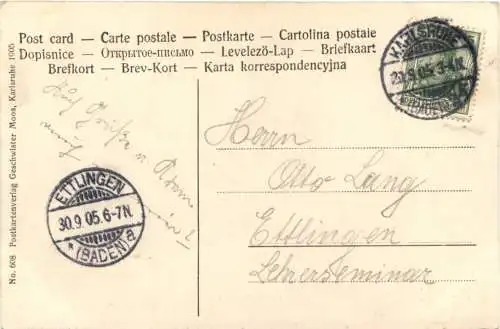 Post card — Carte postale — Postkarte — Cartolina postale
Dopisnice — Открытое-письмо — Levelező-Lap — Briefkaart
Brefkort — Brev-Kort — Karta korrespondencyjna
No. 608 Postkartenverlag Geschwister Moos, Karlsruhe 1905
KARLSRUHE
9.05.
ETTLINGEN
30.9.05.6-7N.
* (BADEN) a
Grüße
Herrn
Otto Lang
Ettlingen
Lehrerseminar